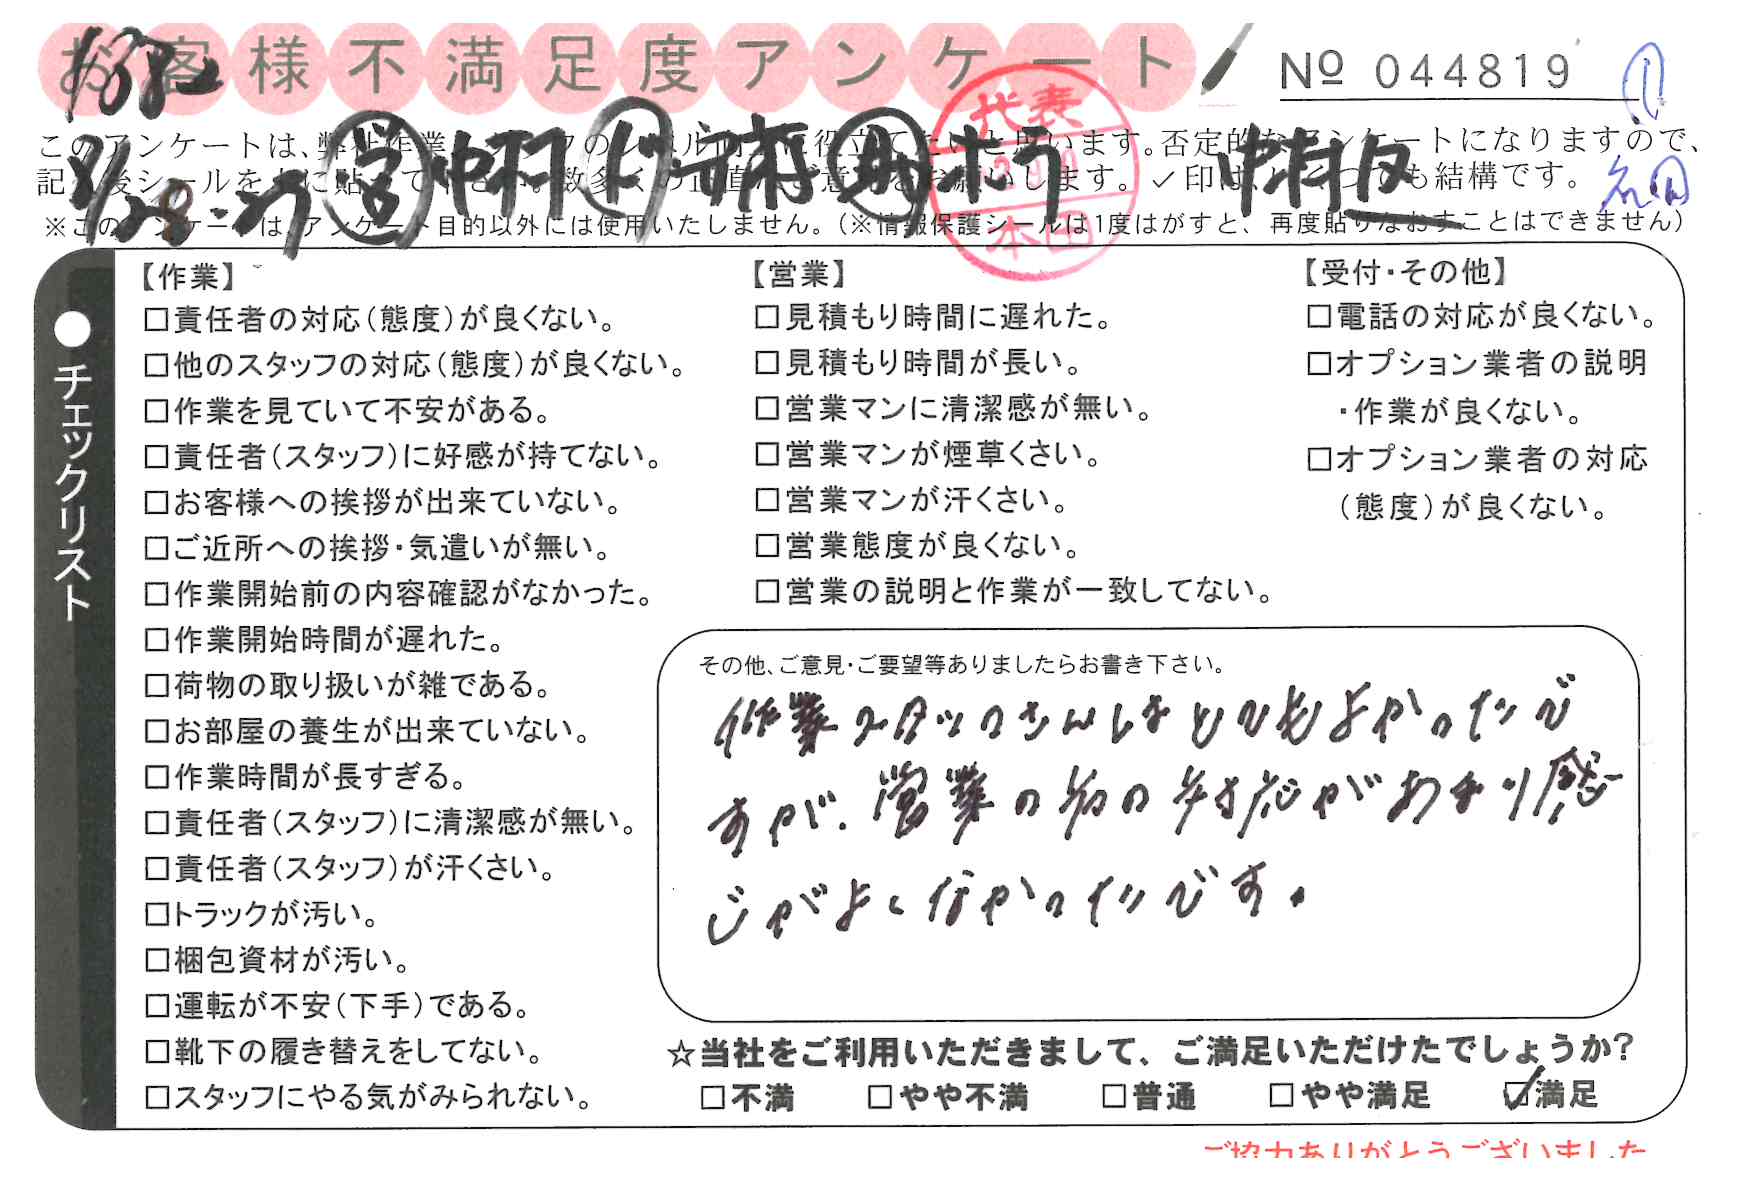 お客様不満足度アンケート
Nº 044819
このアンケートは、弊社作業スタッフのレベル向上に役立てたいと思います。否定的なアンケートになりますので、
記入後シールを上に貼って下さい。数多くの正直なご意見をお願いします。✓印は、いくつでも結構です。
※このアンケートは、アンケート目的以外には使用いたしません。（※情報保護シールは1度はがすと、再度貼りなおすことはできません）
代表
本田
中村
中村
●チェックリスト
【作業】
□責任者の対応（態度）が良くない。
□他のスタッフの対応（態度）が良くない。
□作業を見ていて不安がある。
□責任者（スタッフ）に好感が持てない。
□お客様への挨拶が出来ていない。
□ご近所への挨拶・気遣いが無い。
□作業開始前の内容確認がなかった。
□作業開始時間が遅れた。
□荷物の取り扱いが雑である。
□お部屋の養生が出来ていない。
□作業時間が長すぎる。
□責任者（スタッフ）に清潔感が無い。
□責任者（スタッフ）が汗くさい。
□トラックが汚い。
□梱包資材が汚い。
□運転が不安（下手）である。
□靴下の履き替えをしてない。
□スタッフにやる気がみられない。
【営業】
□見積もり時間に遅れた。
□見積もり時間が長い。
□営業マンに清潔感が無い。
□営業マンが煙草くさい。
□営業マンが汗くさい。
□営業態度が良くない。
□営業の説明と作業が一致してない。
【受付・その他】
□電話の対応が良くない。
□オプション業者の説明
・作業が良くない。
□オプション業者の対応
（態度）が良くない。
その他、ご意見・ご要望等ありましたらお書き下さい。
作業スタッフさんはとてもよかったで
すが、営業の方の対応があまり感
じがよくなかったです。
☆当社をご利用いただきまして、ご満足いただけたでしょうか？
□不満 □やや不満 □普通 □やや満足 ☑満足
ご協力ありがとうございました